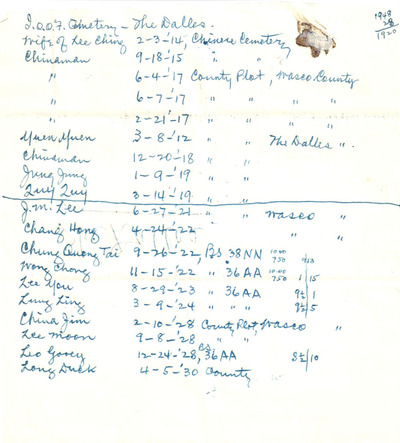 I.O.O.F. Cemetery - The Dalles.
Wife of Lee Ching 2-3-'14, Chinese Cemetery
Chinaman 9-18-'15 " "
" 6-4-'17 County Plot, Wasco County
" 6-7-'17 " " " "
" 2-21-'17 " " " "
Yuen Yuen 3-8-'12 " " The Dalles ".
Chinaman 12-20-'18 " "
Jung Jung 1-9-'19 " "
Quy Quy 3-14-'19 " "
J.M. Lee 6-27-21 " " Wasco "
Chang Hong 4-24-'22 " "
Chung Quong Tai 9-26-'22, Bs 38NN 10.00 7.50 9/13
Wong Chong 11-15-'22 " 36AA 10.00 7.50 1 15
Lee You 8-29-'23 " 36AA 9½ 1
Lung Ling 3-9-'24 " " " 9½ 5
China Jim 2-10-'28 County Plot, Wasco "
Lee Moon 9-8-'28 " "
Leo Gooey 12-24-'28, Bs. 36AA 8½ 10
Long Duck 4-5-'30 County
1948
28
1920